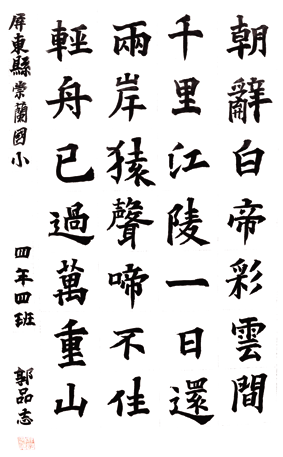 朝辭白帝彩雲間
千里江陵一日還
兩岸猿聲啼不住
輕舟已過萬重山
屏東縣崇蘭國小 四年四班 郭品志